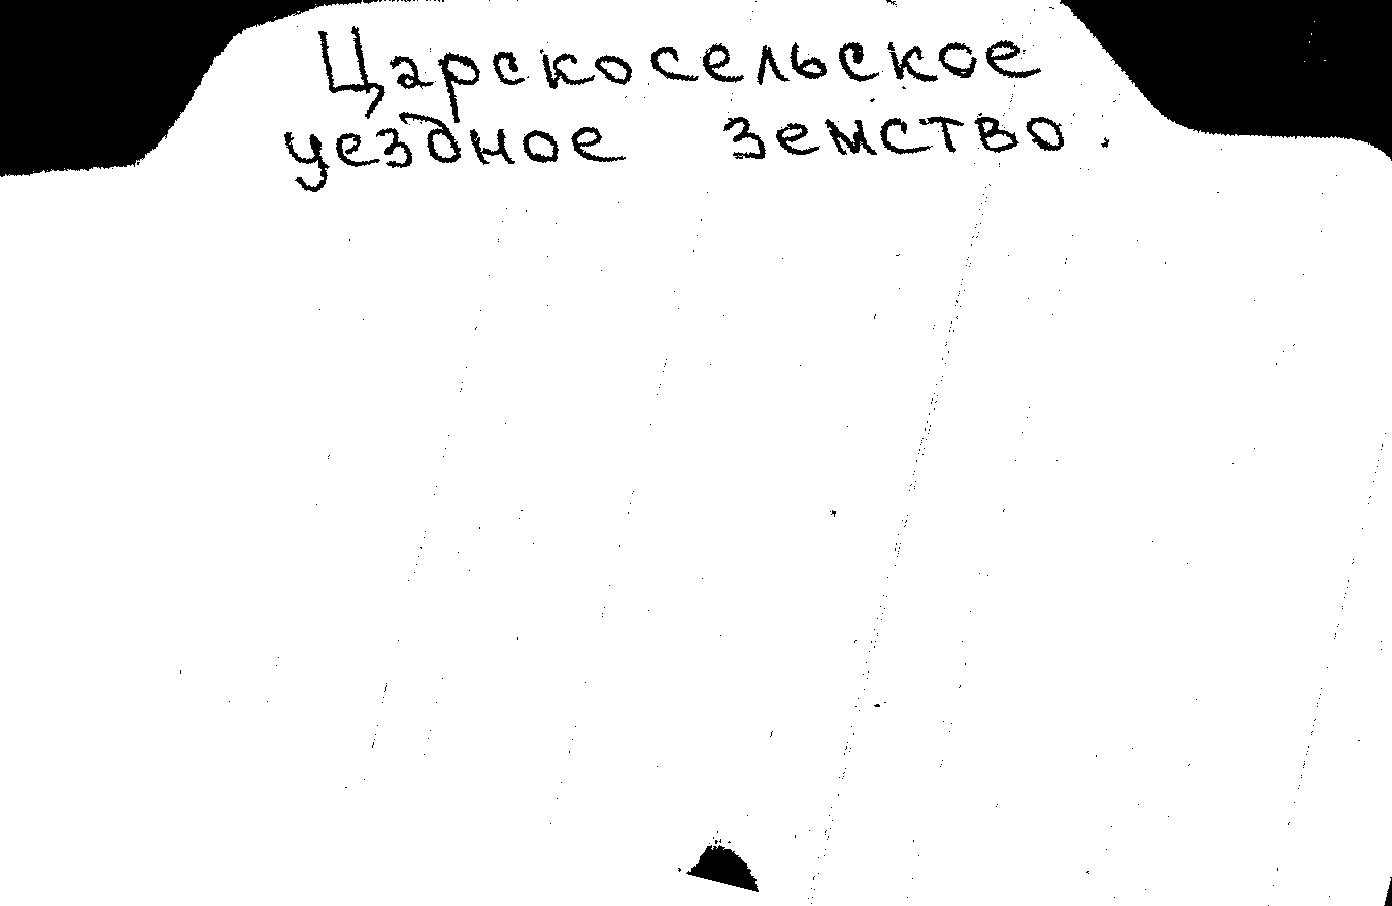 Царскосельское
уездное земство.